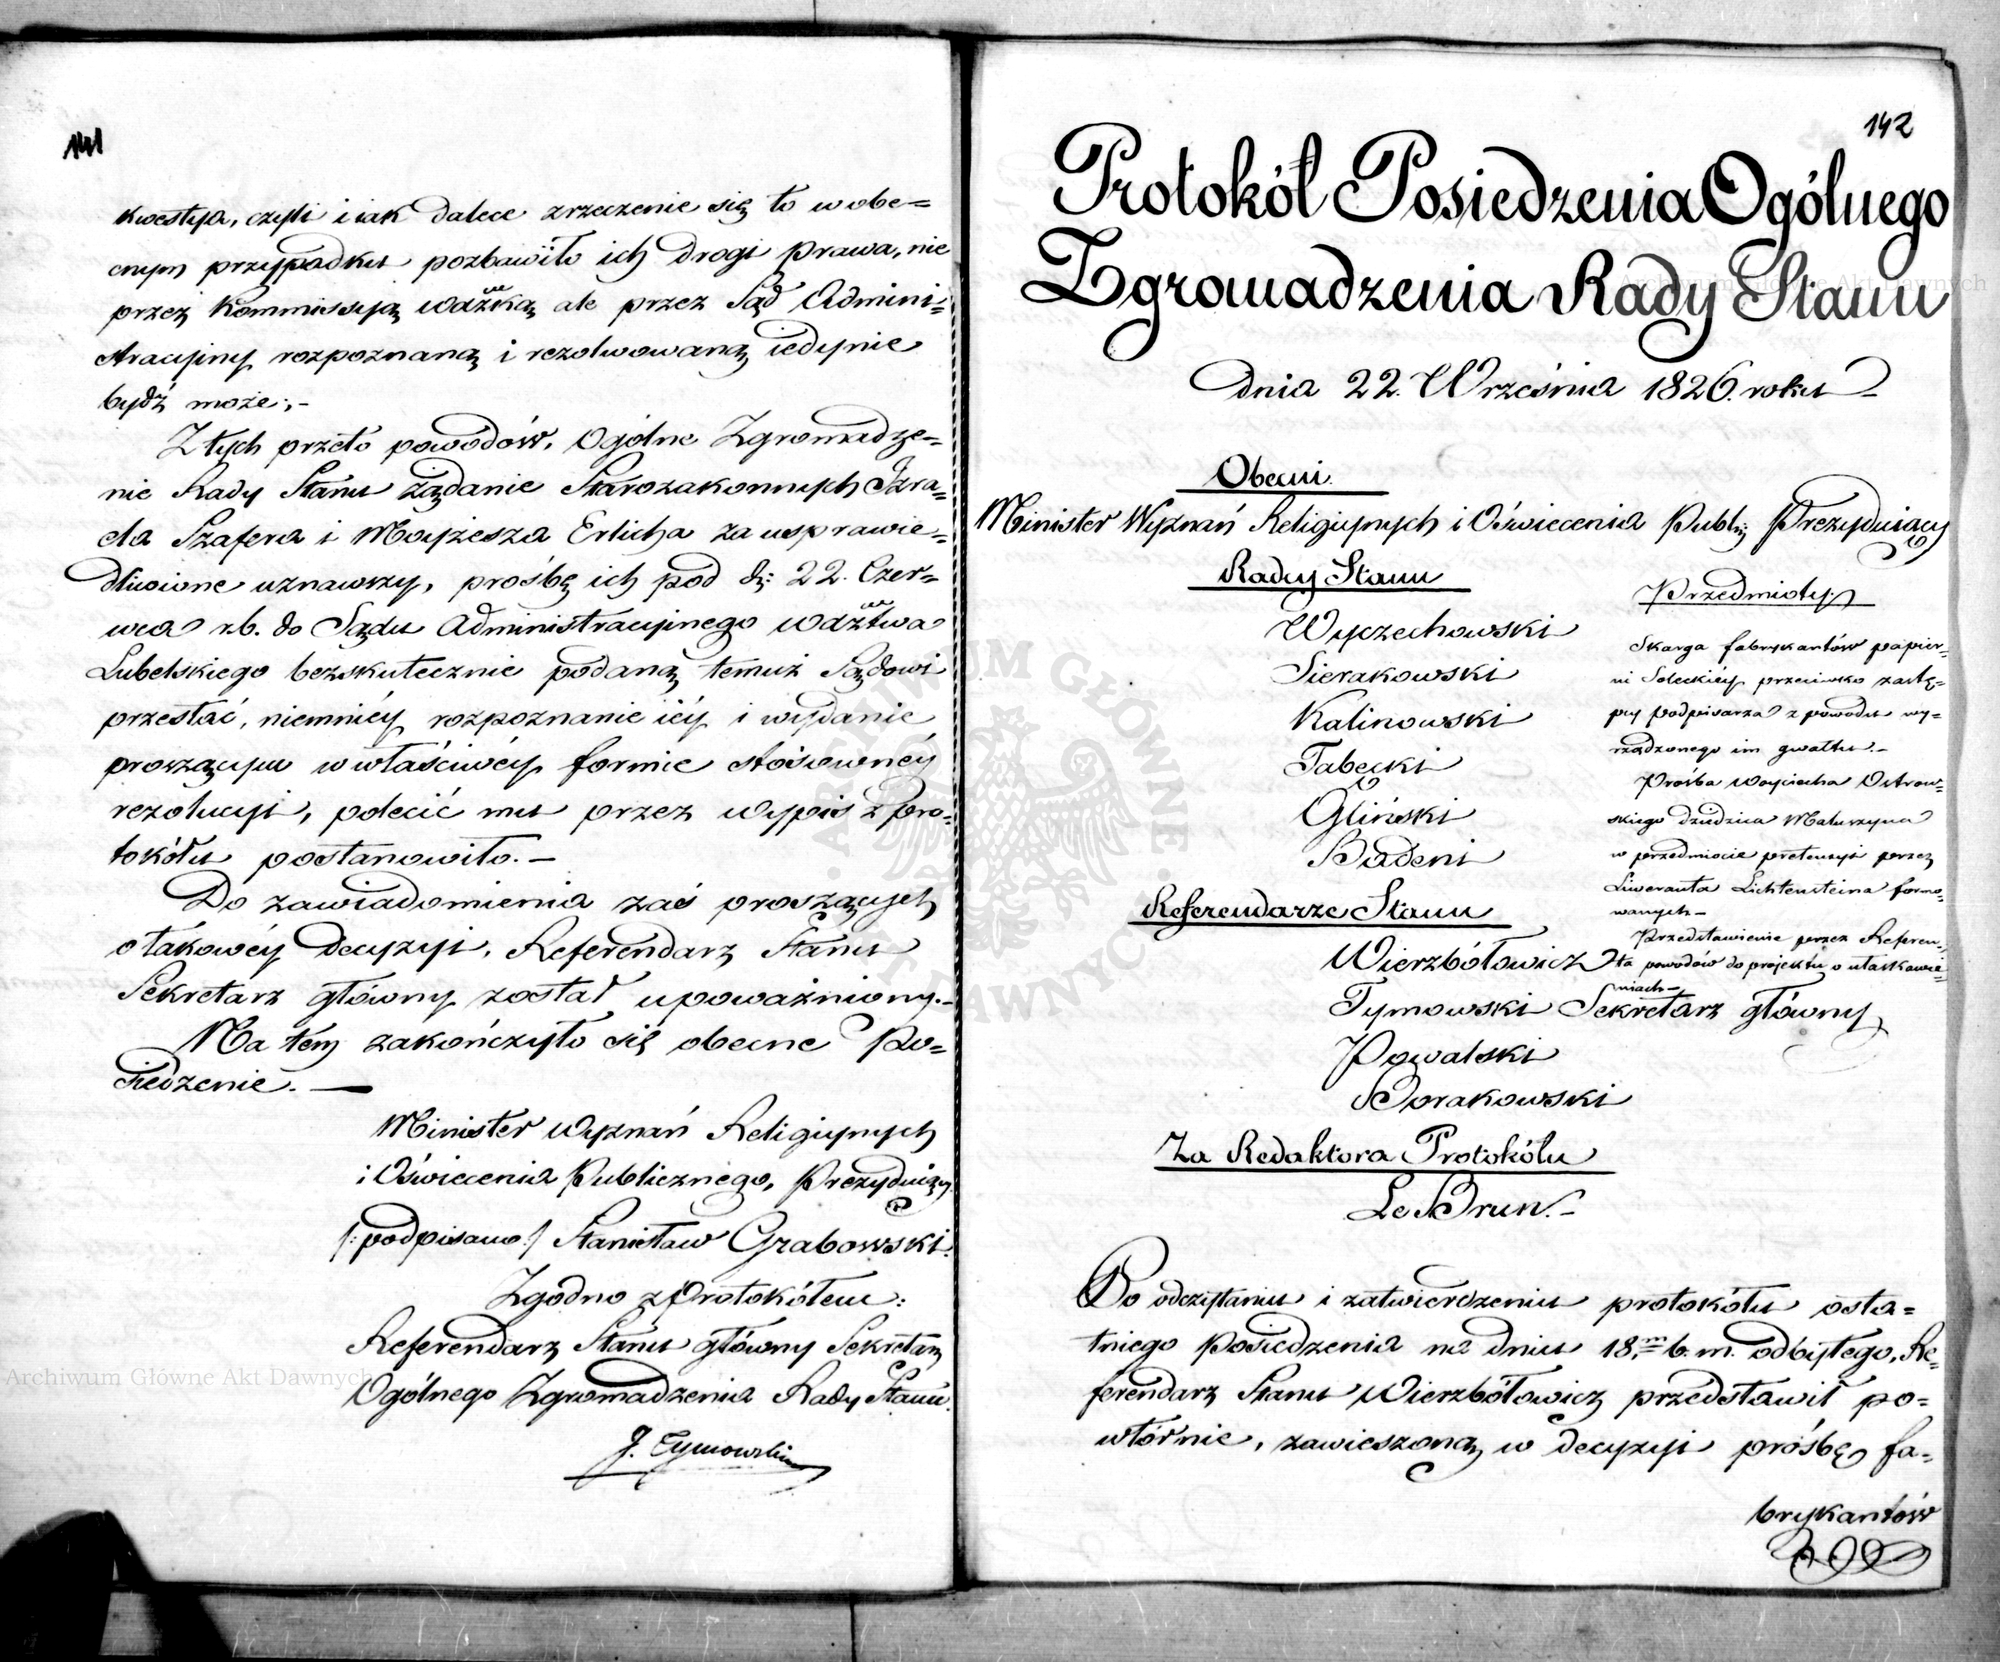 141
kwestya, czyli i iak dalece zrzeczenie się to w obe=
cnym przypadku pozbawiło ich drogi prawa, nie
przez Kommissyją Wdzką ale przez Sąd Admini=
stracyiny rozpoznaną i rezolwowaną iedynie
bydź może;-
Z tych przeto powodów, Ogólne Zgromadze=
nie Rady Stanu żądanie Starozakonnych Izra=
ela Szafera i Moyżesza Erlicha za usprawie=
dliwione uznawszy, prośbę ich pod d: 22. Czer=
wca r.b. do Sądu Administracyinego Wdztwa
Lubelskiego bezskutecznie podaną temuż Sądowi
przesłać, niemniéy rozpoznanie iéy i wydanie
proszącym w właściwéy formie stósownéy
rezolucyi, polecić mu przez wypis z pro=
tokółu postanowiło.-
Do zawiadomienia zaś proszących
o takowéy decyzyi, Referendarz Stanu
Sekretarz główny został upoważniony.-
Na tém zakończyło się obecne Po=
siedzenie. —
Minister Wyznań Religiynych
i Oświecenia Publicznego, Prezyduiący
/:podpisano:/ Stanisław Grabowski.
Zgodno z Protokółem:
Referendarz Stanu główny Sekretarz
Ogólnego Zgromadzenia Rady Stanu.
J. Tymowski
142
Protokół Posiedzenia Ogólnego
Zgromadzenia Rady Stanu
dnia 22. Września 1826. roku
Obecni.
Minister Wyznań Religiynych i Oświecenia Publ: Prezyduiący
Radcy Stanu
Wyczechowski
Sierakowski
Kalinowski
Tabęcki
Gliński
Badeni
Referendarze Stanu
Wierzbołowicz
Tymowski Sekretarz główny
Powalski
Borakowski
Za Redaktora Protokółu
Le Brun.-
Przedmioty:
Skarga fabrykantów papier=
ni Soleckiéy przeciwko zastę=
pcy podpisarza z powodu wy=
rządzonego im gwałtu.-
Prośba Woyciecha Ostrow=
skiego dziedzica Maluszyna
w przedmiocie pretensyi przez
Liweranta Lichtensteina formo=
wanych-
Przedstawienie przez Referen=
ta powodów do projektu o ułaskawie=
niach-
Po odczytaniu i zatwierdzeniu protokółu osta=
tniego Posiedzenia na dniu 18.m b.m. odbytego, Re=
ferendarz Stanu Wierzbołowicz przedstawił po=
wtórnie, zawieszoną w decyzyi prośbę fa=
brykantów
ARCHIWUM GŁÓWNE AKT DAWNYCH
Archiwum Główne Akt Dawnych
Archiwum Główne Akt Dawnych